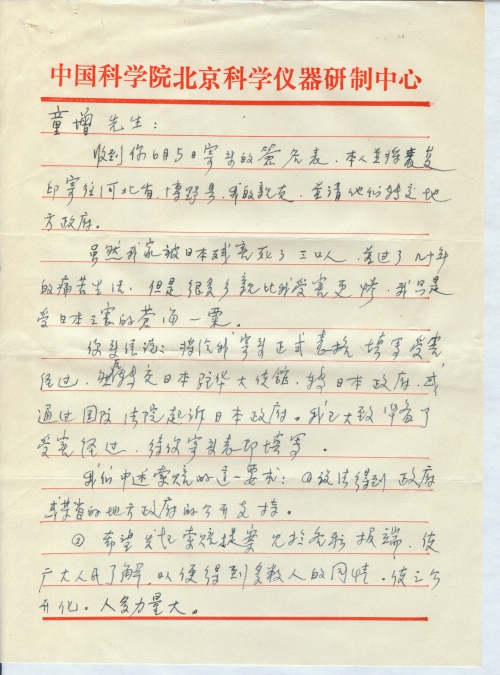 中国科学院北京科学仪器研制中心
童增先生：
收到你6月5日寄来的签名表，本人并将表复
印寄往河北省，博野县，我的亲友，并请他们转交地
方政府。
虽然我家被日本残害死了三口人，并过了几十年
的痛苦生活，但是很多乡亲比我受害更惨，我只是
受日本之害的苍海一粟。
你来信说：将给我寄来正式表格填写受害
经过，转交日本驻华大使馆，转日本政府，或
通过国际法院起诉日本政府。我已大致准备了
受害经过，待你寄来表即填写。
我们申述索赔的这一要求：①设法得到政府
或某省的地方政府的公开支持。
②希望发起索赔提案见报端，使
广大人民了解，以便得到多数人的同情。使之公
开化。人多力量大。